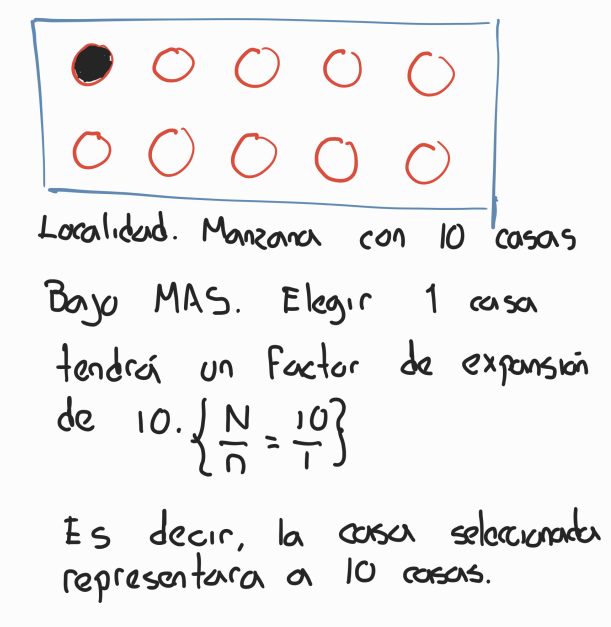 Localidad. Manzana con 10 casas
Bajo MAS. Elegir 1 casa
tendrá un Factor de expansión
de 10. { N/n = 10/1 }
Es decir, la casa seleccionada
representara a 10 casas.